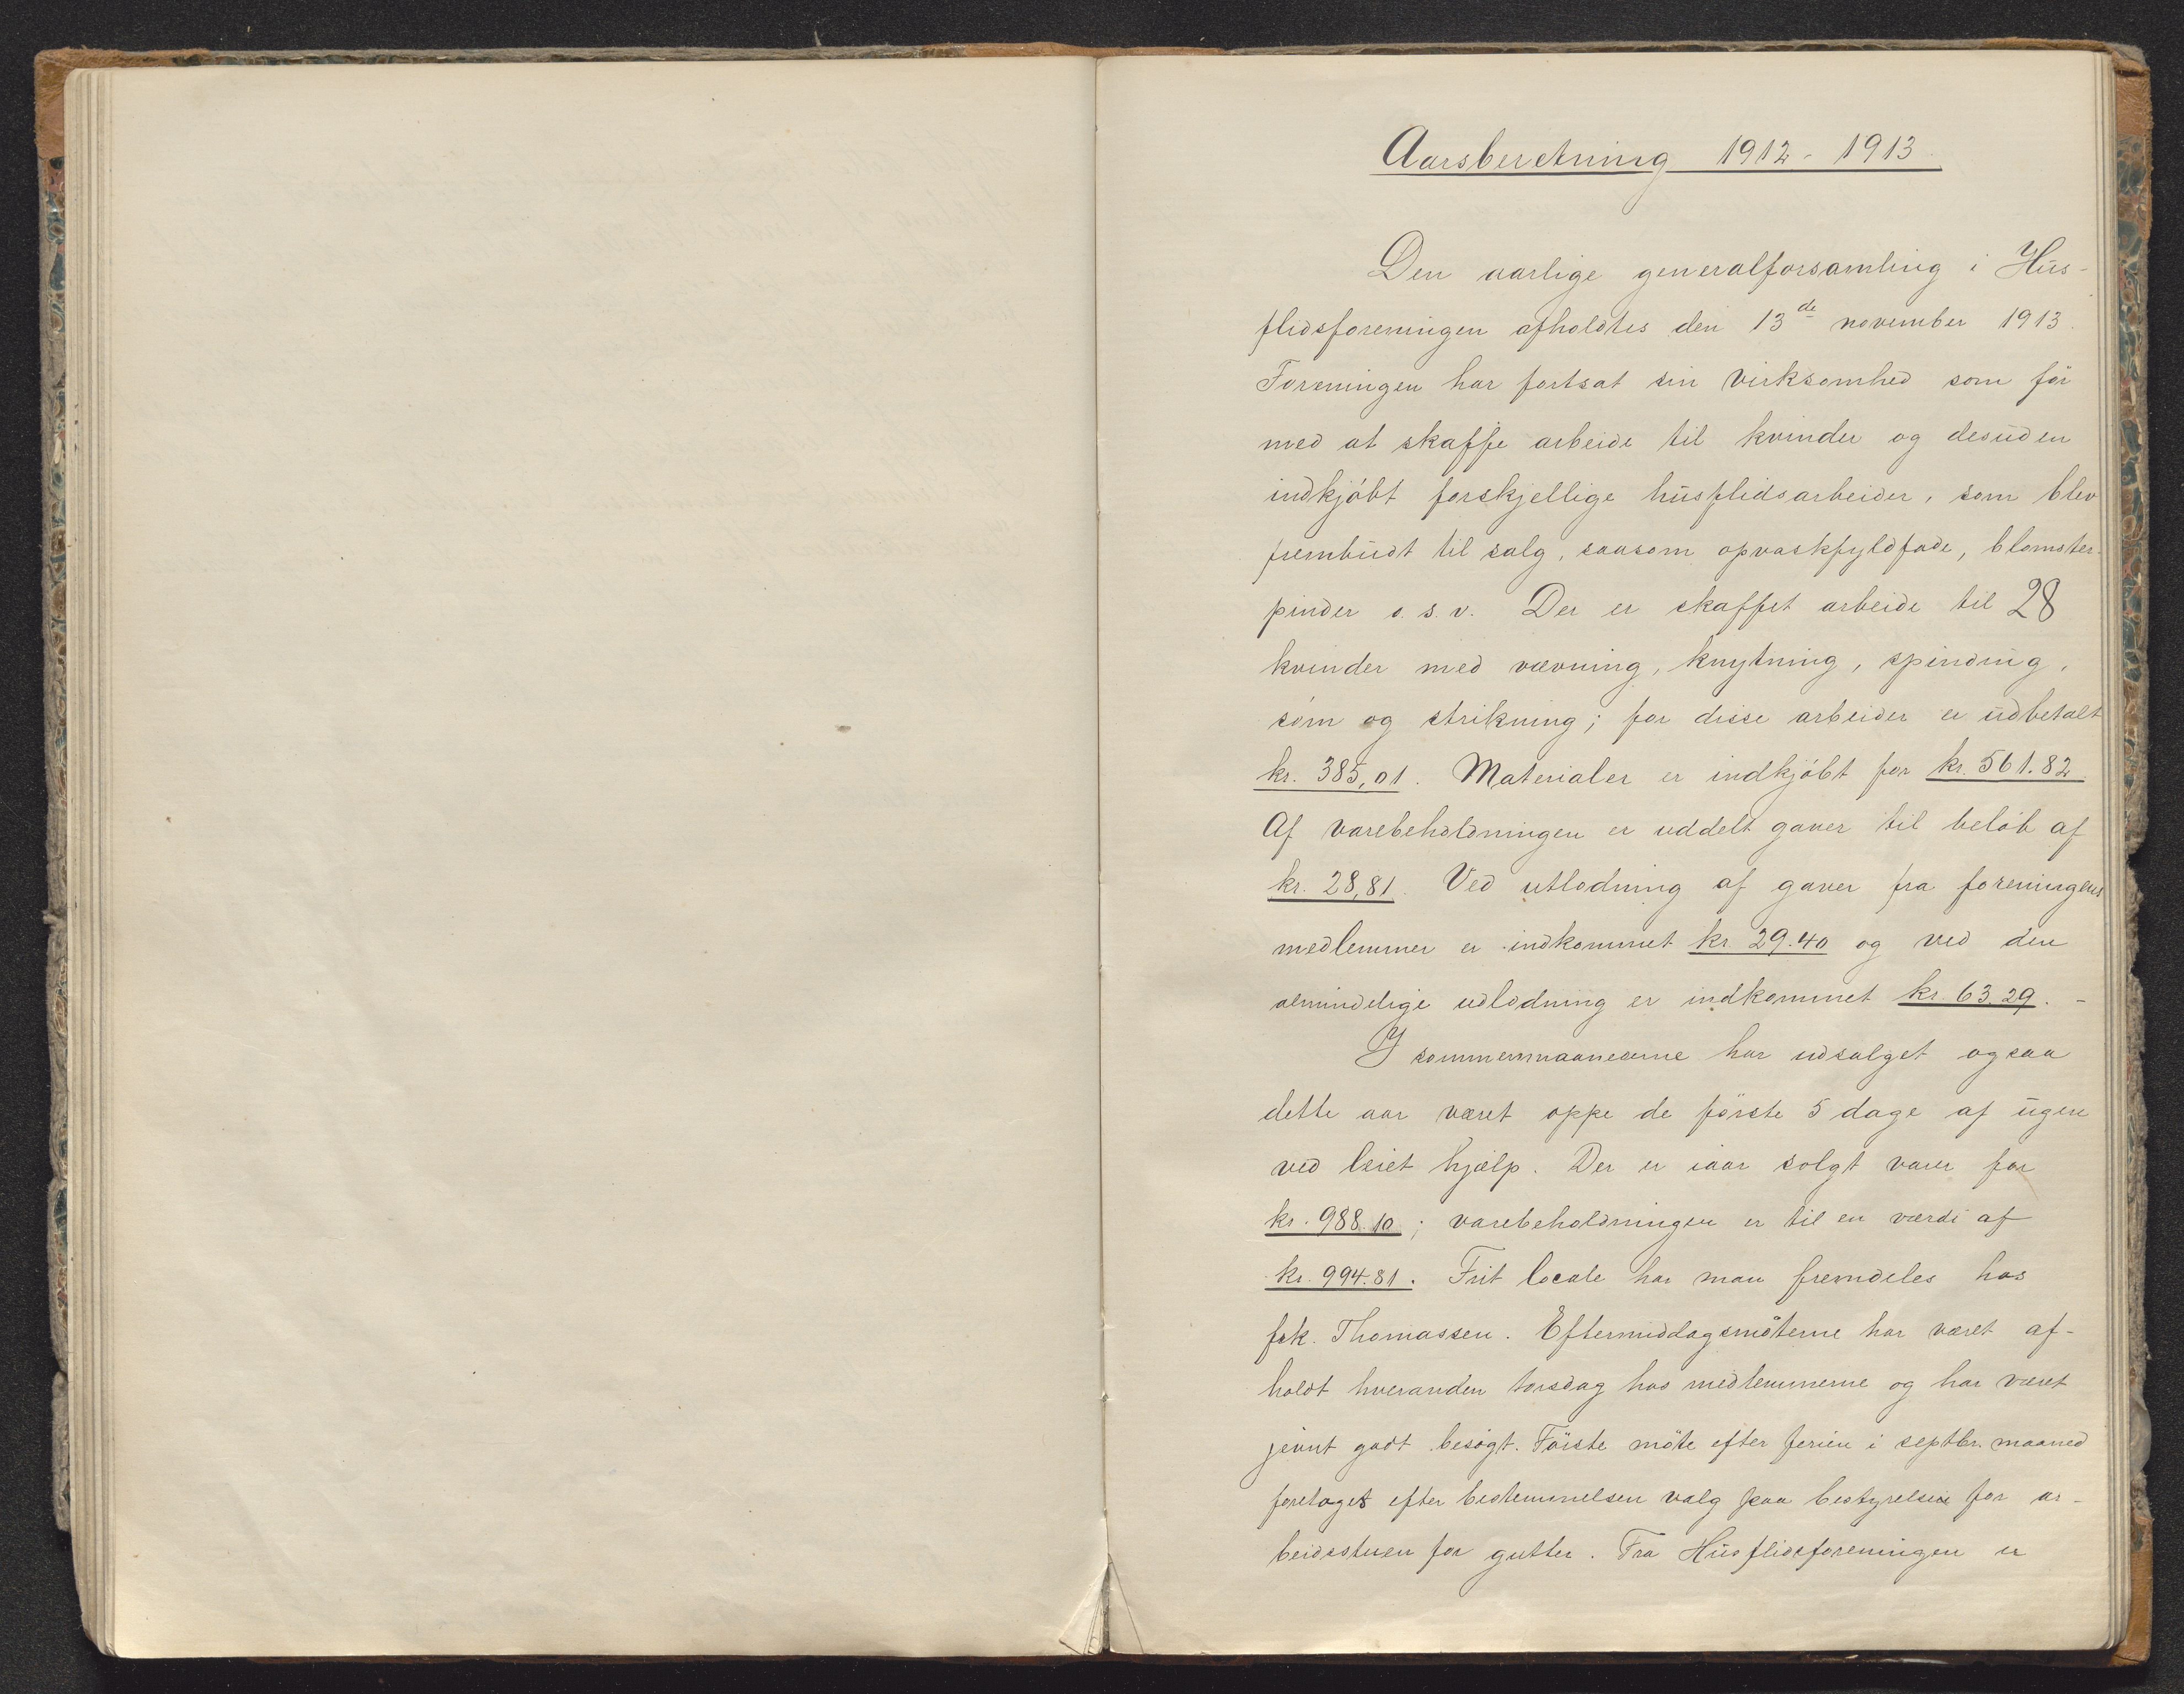 Aarsberetning 1912 - 1913.
Den aarlige generalforsamling i Hus-
flidsforeningen afholdtes den 13de november 1913.
Foreningen har fortsat sin virksomhed som før
med at skaffe arbeide til kvinder og desuden
indkjøbt forskjellige husflidsarbeider, som blev
frembudt til salg, saasom opvaskfyldfade, blomster-
pinder o. s. v. Der er skaffet arbeide til 28
kvinder med vævning, knytning, spinding,
søm og strikning; for disse arbeider er udbetalt
kr. 385,01. Materialer er indkjøbt for kr. 561.82
Af varebeholdningen er uddelt gaver til beløb af
kr. 28,81. Ved utlodning af gaver fra foreningens
medlemmer er indkommet kr 29.40 og ved den
almindelige udlodning er indkommet kr. 63.29. -
I sommermaanederne har udsalget ogsaa
dette aar været oppe de første 5 dage af ugen
ved leiet hjælp. Der er iaar solgt varer for
kr. 988.10; varebeholdningen er til en værdi af
kr. 994.81. Frit locale har man fremdeles hos
frk. Thomassen. Eftermiddagsmøterne har været af-
holdt hveranden torsdag hos medlemmerne og har været
jevnt godt besøgt. Første møte efter ferien i septbr. maaned
foretoges efter bestemmelsen valg paa bestyrelsen for ar-
beidsstuen for gutter. Fra Husflidsforeningen er